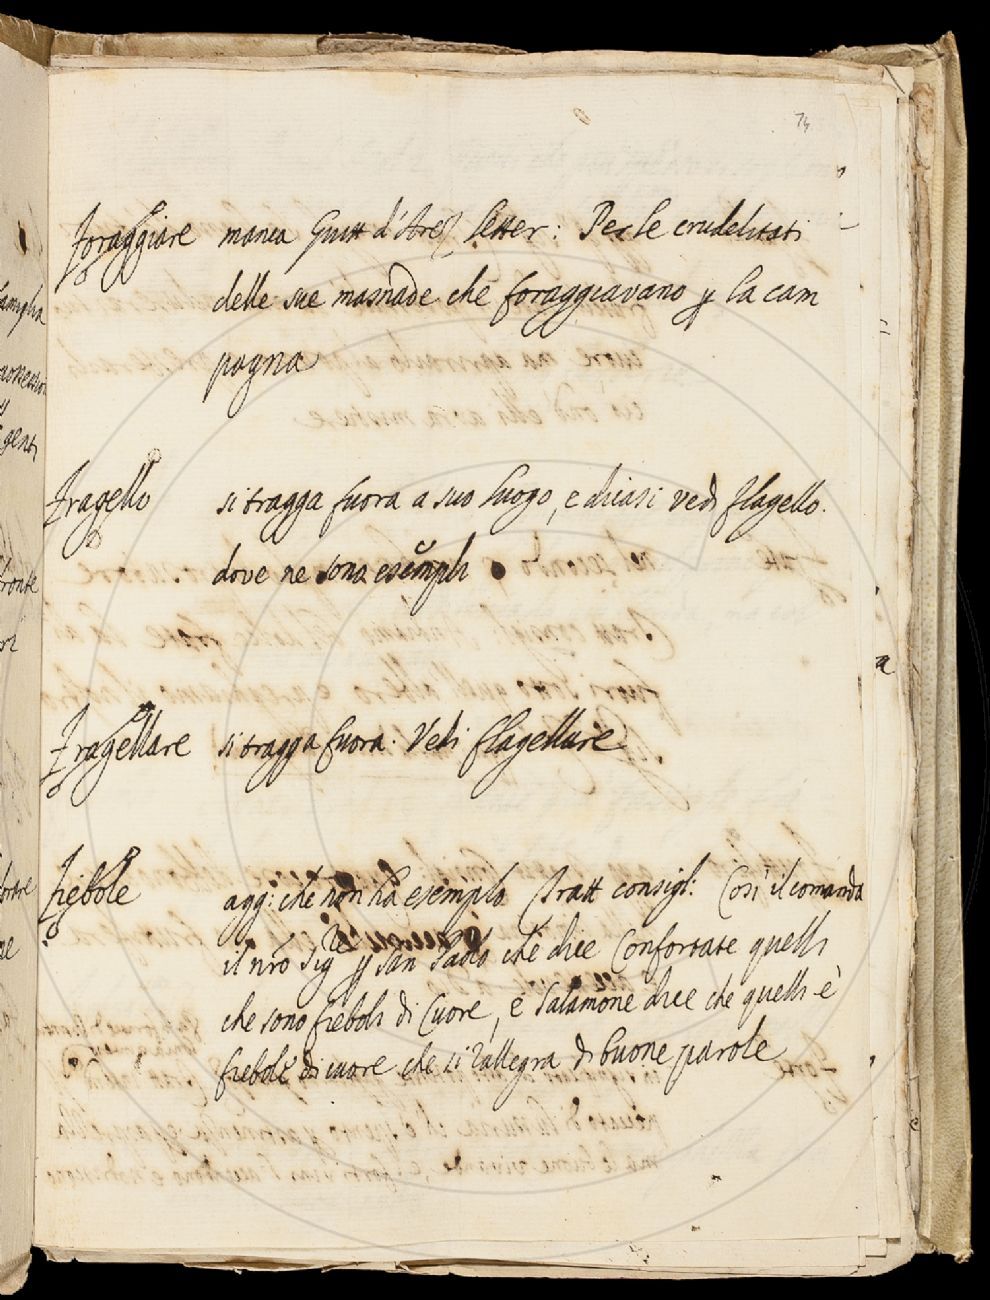 74
foraggiare manca Guitt d'Arez letter: Per le crudelitati
delle sue masnade che foraggiavano p la cam
pagna
fragello si tragga fuora a suo luogo, e dicasi vedi flagello.
dove ne sono esempli
fragellare si tragga fuora. Vedi flagellare
fiebole agg: che non ha esemplo Tratt consigl: Così il comanda
il nro Sig re p San Paolo che dice Confortate quelli
che sono fieboli di Cuore, e Salamone dice che quelli è
fiebole di cuore che si rallegra di buone parole